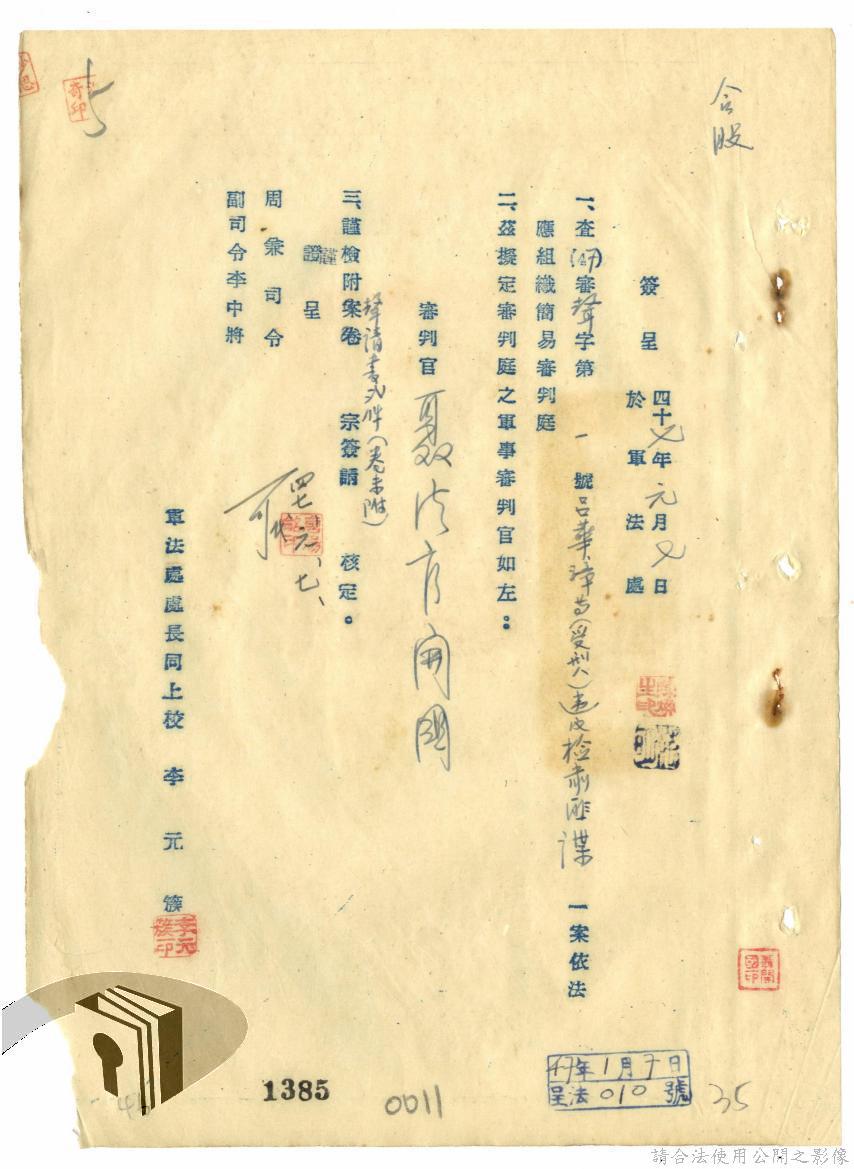 合股
簽呈
四十七年元月七日
於軍法處
一、查(47)審聲字第一號呂華璋等(受刑人)違反檢肅匪諜一案依法
應組織簡易審判庭
二、茲擬定審判庭之軍事審判官如左：
審判官 聶開國
三、謹檢附案卷 宗簽請 核定。
聲請書 件(卷未附)
謹呈
周兼司令
副司令李中將
可
四七、元、七、
軍法處處長同上校 李元簇
李元簇印
聶開國印
47年1月7日
呈法010號
1385
0011
35
請合法使用公開之影像